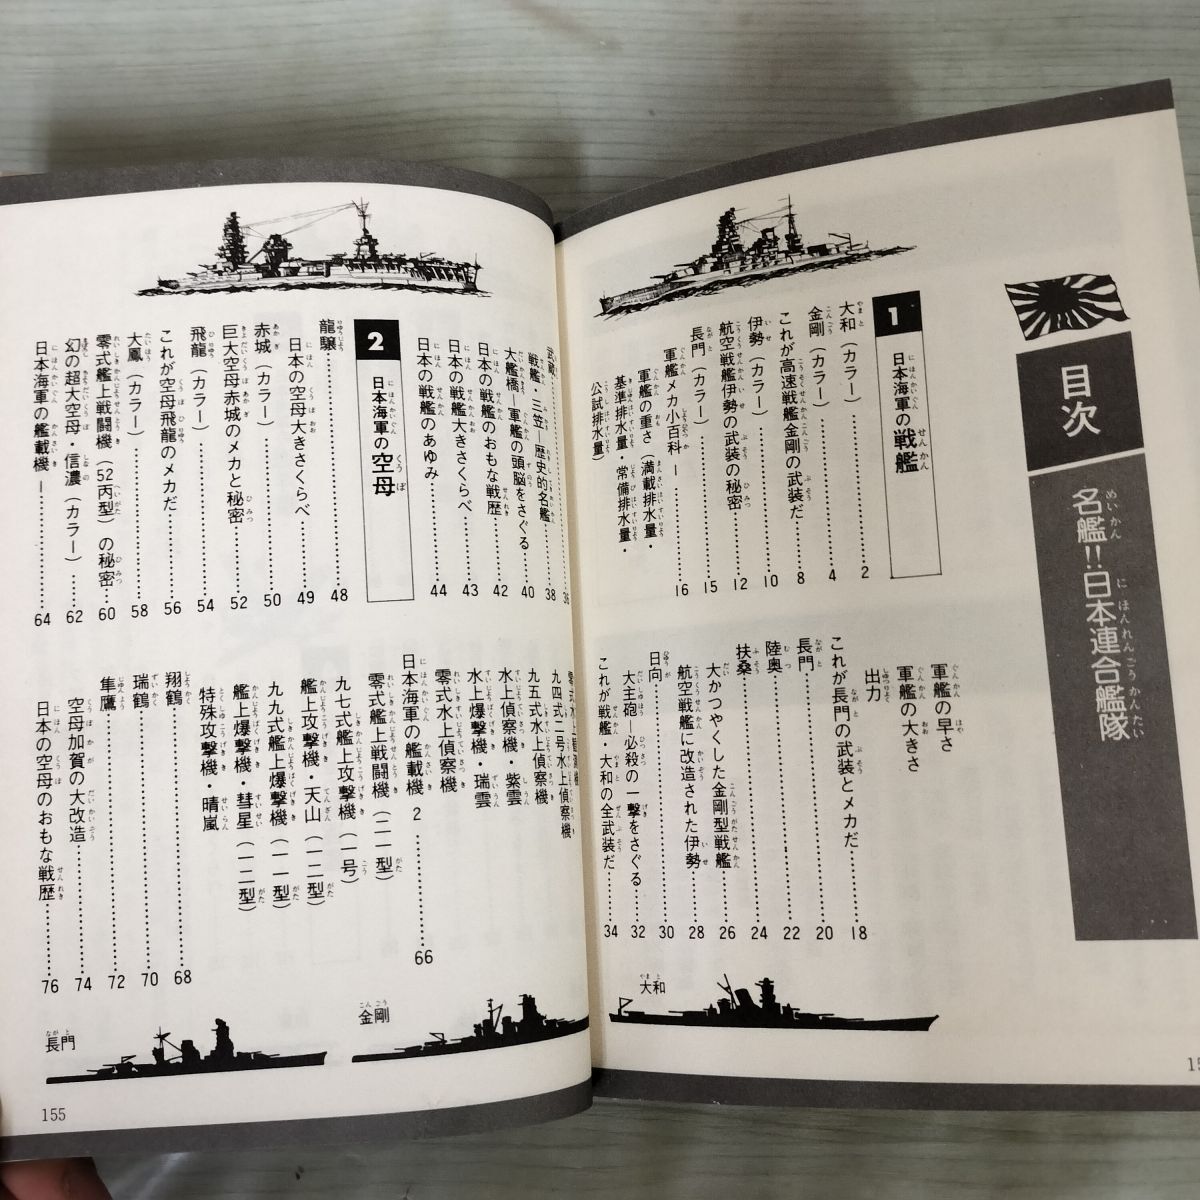 目次
名艦!!日本連合艦隊
1 日本海軍の戦艦
大和(カラー)……2
金剛(カラー)……4
これが高速戦艦金剛の武装だ……8
伊勢(カラー)……10
航空戦艦伊勢の武装の秘密……12
長門(カラー)……15
軍艦メカ小百科ー……16
軍艦の重さ(満載排水量・
基準排水量・常備排水量・
公試排水量)
軍艦の早さ
軍艦の大きさ
出力
これが長門の武装とメカだ……18
長門……20
陸奥……22
扶桑……24
大かつやくした金剛型戦艦……26
航空戦艦に改造された伊勢……28
日向……30
大主砲―必殺の一撃をさぐる……32
これが戦艦・大和の全武装だ……34
大和
武蔵……36
戦艦・三笠―歴史的名艦……38
大艦橋―軍艦の頭脳をさぐる……40
日本の戦艦のおもな戦歴……42
日本の戦艦大きさくらべ……43
日本の戦艦のあゆみ……44
2 日本海軍の空母
龍驤……48
日本の空母大きさくらべ……49
赤城(カラー)……50
巨大空母赤城のメカと秘密……52
飛龍(カラー)……54
これが空母飛龍のメカだ……56
大鳳(カラー)……58
零式艦上戦闘機(52丙型)の秘密……60
幻の超大空母・信濃(カラー)……62
日本海軍の艦載機ー……64
九四式二号水上偵察機
九五式水上偵察機
水上偵察機・紫雲
水上爆撃機・瑞雲
零式水上偵察機
日本海軍の艦載機2……66
零式艦上戦闘機(二一型)
九七式艦上攻撃機(一号)
艦上攻撃機・天山(一二型)
九九式艦上爆撃機(一一型)
艦上爆撃機 彗星(一二型)
特殊攻撃機・晴嵐
翔鶴……68
瑞鶴……70
隼鷹……72
空母加賀の大改造……74
日本の空母のおもな戦歴……76
金剛
長門
155